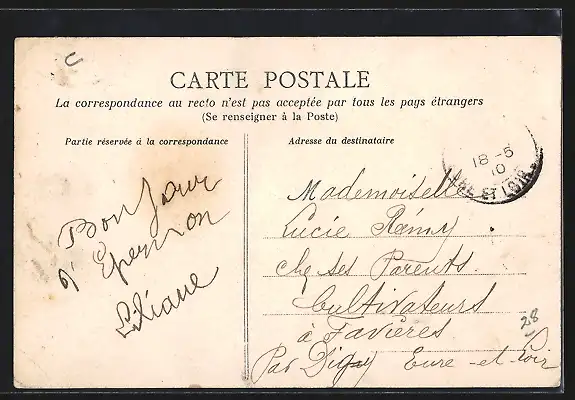 CARTE POSTALE
La correspondance au recto n'est pas acceptée par tous les pays étrangers
(Se renseigner à la Poste)
Partie réservée à la correspondance
Adresse du destinataire
18-5
10
EURE ET LOIR
Bonjour
d'Epernon
Liliane
Mademoiselle
Lucie Rémy
chez ses Parents
Cultivateurs
à Favières
Par Digny Eure-et-Loir
28